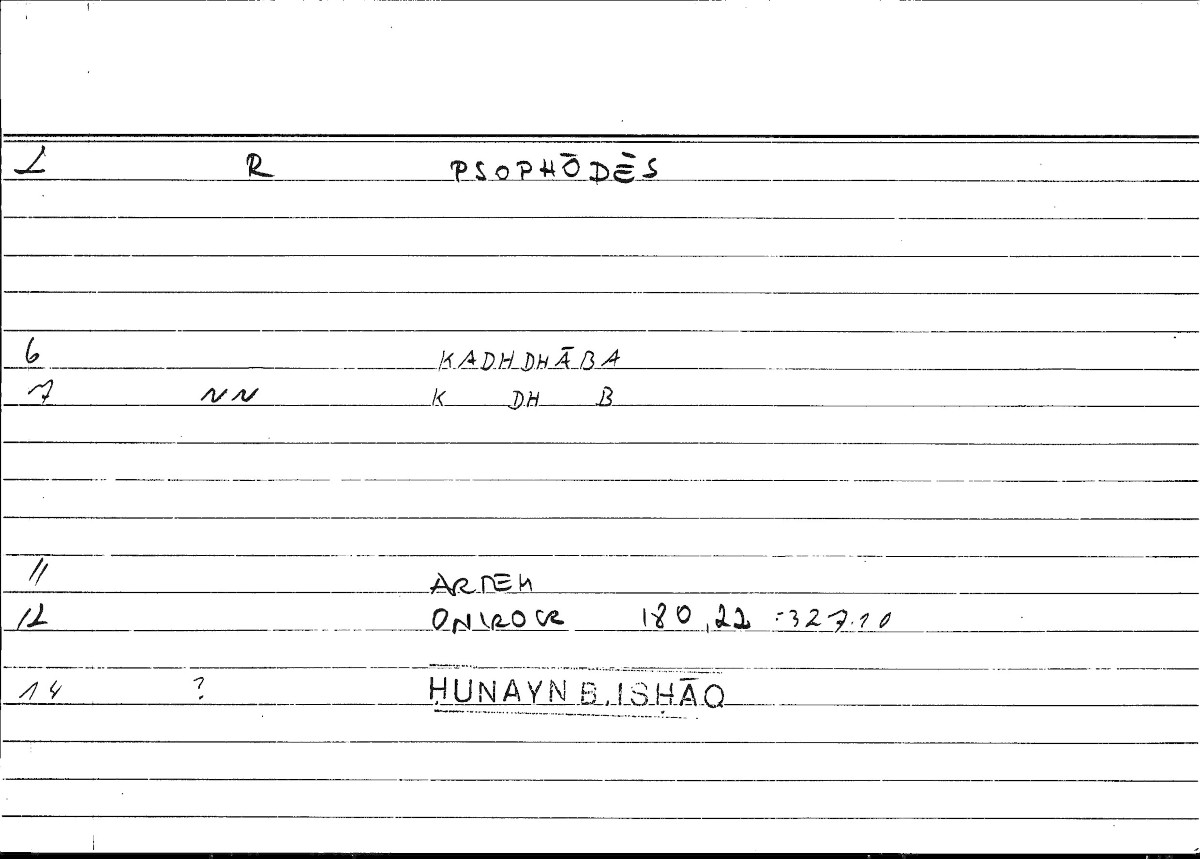 1 R PSOPHŌDĒS
6 KADHDHĀBA
7 NN K DH B
11 ARTEM
12 ONIROCR 180,22 = 327.10
14 ? ḤUNAYN B. ISḤĀQ